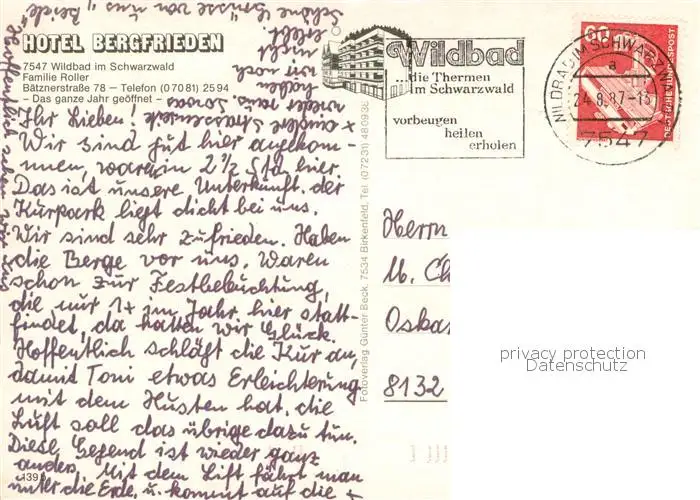 HOTEL BERGFRIEDEN
7547 Wildbad im Schwarzwald
Familie Roller
Bätznerstraße 78 – Telefon (07081) 2594
– Das ganze Jahr geöffnet –
Ihr Lieben!
Wir sind gut hier angekom-
men, waren in 2½ Std hier.
Das ist unsere Unterkunft. der
Kurpark liegt dicht bei uns.
Wir sind sehr zufrieden. Haben
die Berge vor uns. Waren
schon zur Festbeleuchtung,
die nur 1x im Jahr hier statt-
findet, da hatten wir Glück.
Hoffentlich schlägt die Kur an,
damit Toni etwas Erleichterung
mit dem Husten hat. die
Luft soll das übrige dazu tun.
Diese Gegend ist wieder ganz
anders. Mit dem Lift fährt man
unter die Erde, u. kommt auf die +
+ andere Strassenseite
wieder raus. Sowas
haben
wir noch
nicht
erlebt
Schöne Grüsse von uns Beide
Hoffentlich sehen wir uns
139
Fotoverlag Günter Beck, 7534 Birkenfeld, Tel. (07231) 480938
Wildbad
...die Thermen
im Schwarzwald
vorbeugen
heilen
erholen
WILDBAD IM SCHWARZW
a
24.8.87-15
7547
60
DEUTSCHE BUNDESPOST
Herrn
M. Ch
Oskar
8132
privacy protection
Datenschutz